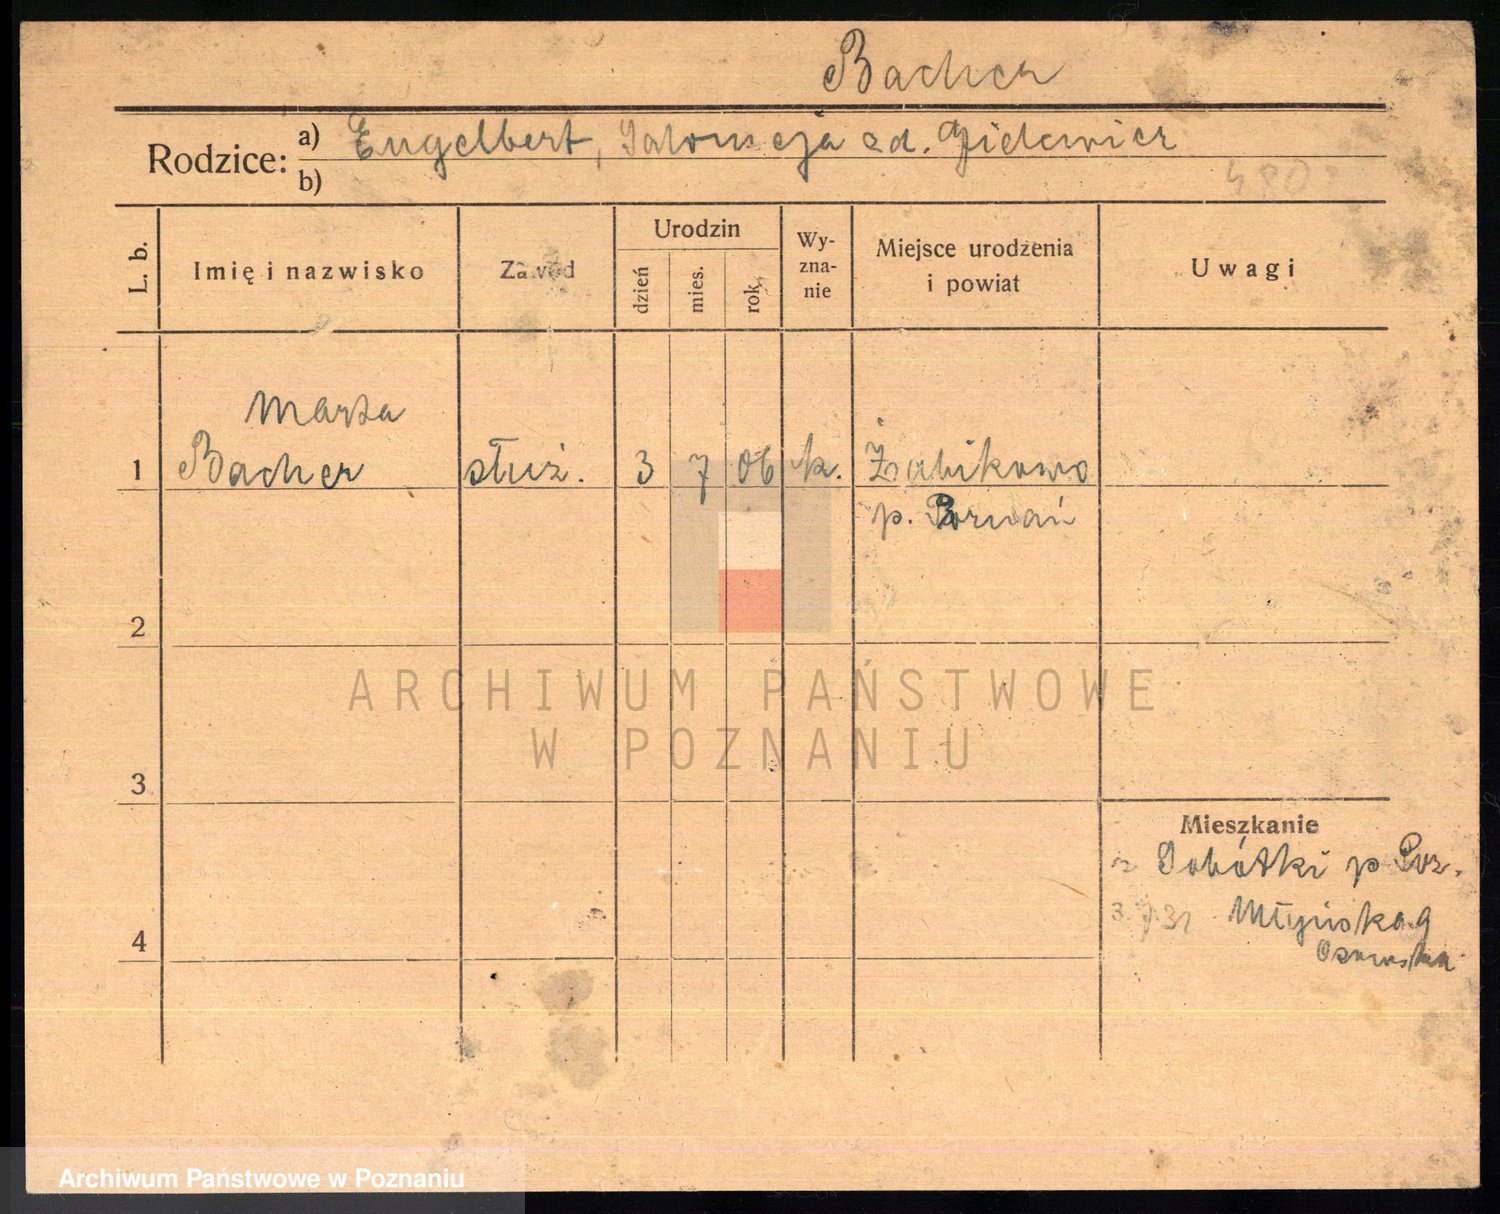 Bacher
Rodzice: a) Engelbert, Salomeja zd.
b)
480
L. b. Imię i nazwisko Zawód Urodzin dzień mies. rok Wy-zna-nie Miejsce urodzenia i powiat Uwagi
Marta
1 Bacher służ. 3 7 06 k. Żabikowo
p. Poznań
2
ARCHIWUM PAŃSTWOWE
W POZNANIU
3
Mieszkanie
z Sobótki p Poz.
3.7.31 Młyńska 9
4
Archiwum Państwowe w Poznaniu